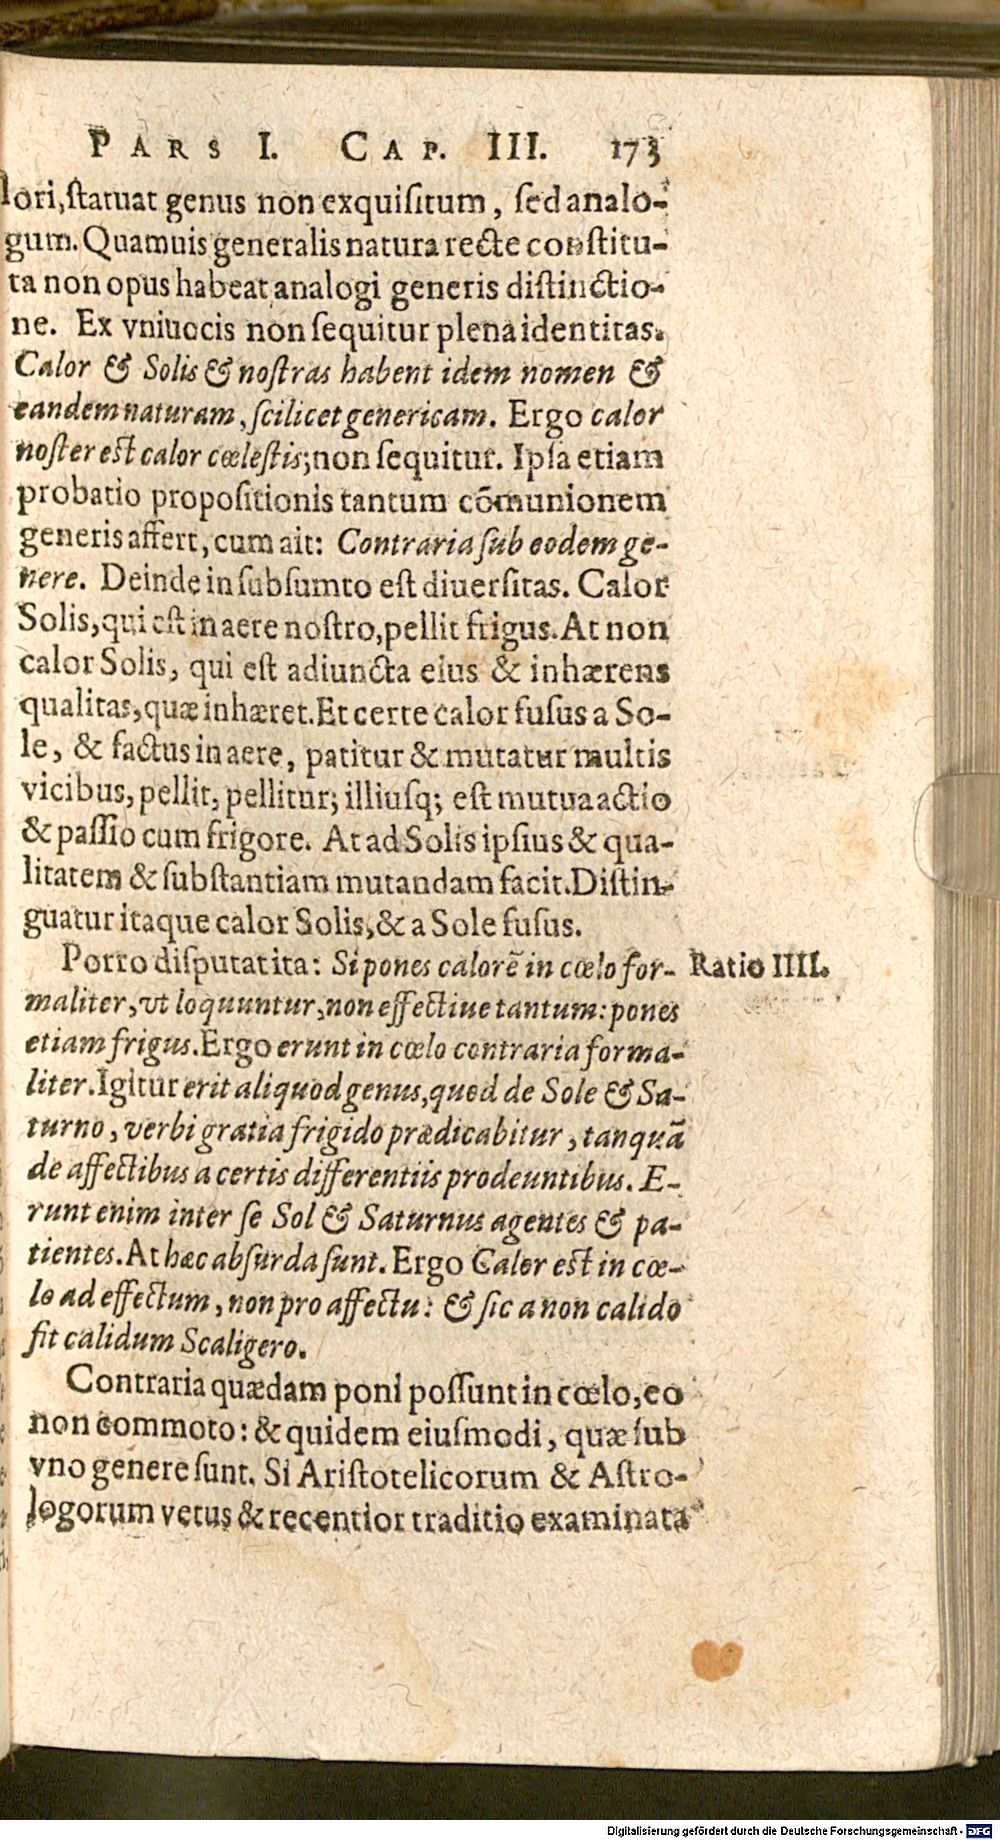 PARS I. CAP. III. 173
lori, ſtatuat genus non exquiſitum, ſed analo-
gum. Quamuis generalis natura recte conſtitu-
ta non opus habeat analogi generis diſtinctio-
ne. Ex vniuocis non ſequitur plena identitas.
Calor & Solis & noſtras habent idem nomen &
eandem naturam, ſcilicet genericam. Ergo calor
noſter eſt calor cœleſtis; non ſequitur. Ipſa etiam
probatio propoſitionis tantum cōmunionem
generis affert, cum ait: Contraria ſub eodem ge-
nere. Deinde in ſubſumto eſt diuerſitas. Calor
Solis, qui eſt in aere noſtro, pellit frigus. At non
calor Solis, qui eſt adiuncta eius & inhærens
qualitas, quæ inhæret. Et certe calor fuſus a So-
le, & factus in aere, patitur & mutatur multis
vicibus, pellit, pellitur; illiuſq; eſt mutua actio
& paſſio cum frigore. At ad Solis ipſius & qua-
litatem & ſubſtantiam mutandam facit. Diſtin-
guatur itaque calor Solis, & a Sole fuſus.
Porro diſputat ita: Si pones calorē in cœlo for-
Ratio IIII.
maliter, vt loquuntur, non effectiue tantum: pones
etiam frigus. Ergo erunt in cœlo contraria forma-
liter. Igitur erit aliquod genus, quod de Sole & Sa-
turno, verbi gratia frigido prædicabitur, tanquā
de affectibus a certis differentiis prodeuntibus. E-
runt enim inter ſe Sol & Saturnus agentes & pa-
tientes. At hæc abſurda ſunt. Ergo Calor eſt in cœ-
lo ad effectum, non pro affectu: & ſic a non calido
fit calidum Scaligero.
Contraria quædam poni poſſunt in cœlo, eo
non commoto: & quidem eiuſmodi, quæ ſub
vno genere ſunt. Si Ariſtotelicorum & Aſtro-
logorum vetus & recentior traditio examinata
Digitalisierung gefördert durch die Deutsche Forschungsgemeinschaft - DFG